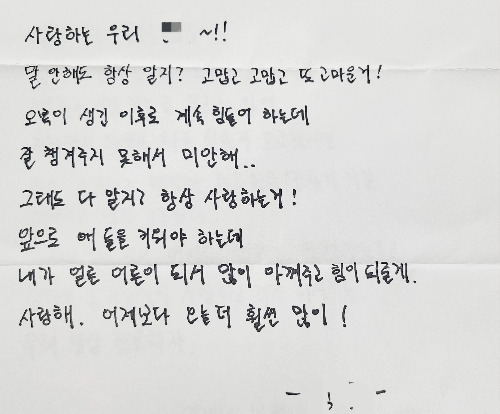 사랑하는 우리 ~!!
말 안해도 항상 알지? 고맙고 고맙고 또 고마운거!
오복이 생긴 이후로 계속 힘들어 하는데
잘 챙겨주지 못해서 미안해..
그래도 다 알지? 항상 사랑하는거!
앞으로 애 둘을 키워야 하는데
내가 얼른 어른이 되서 많이 아껴주고 힘이 되줄게.
사랑해. 어제보다 오늘 더 훨씬 많이!